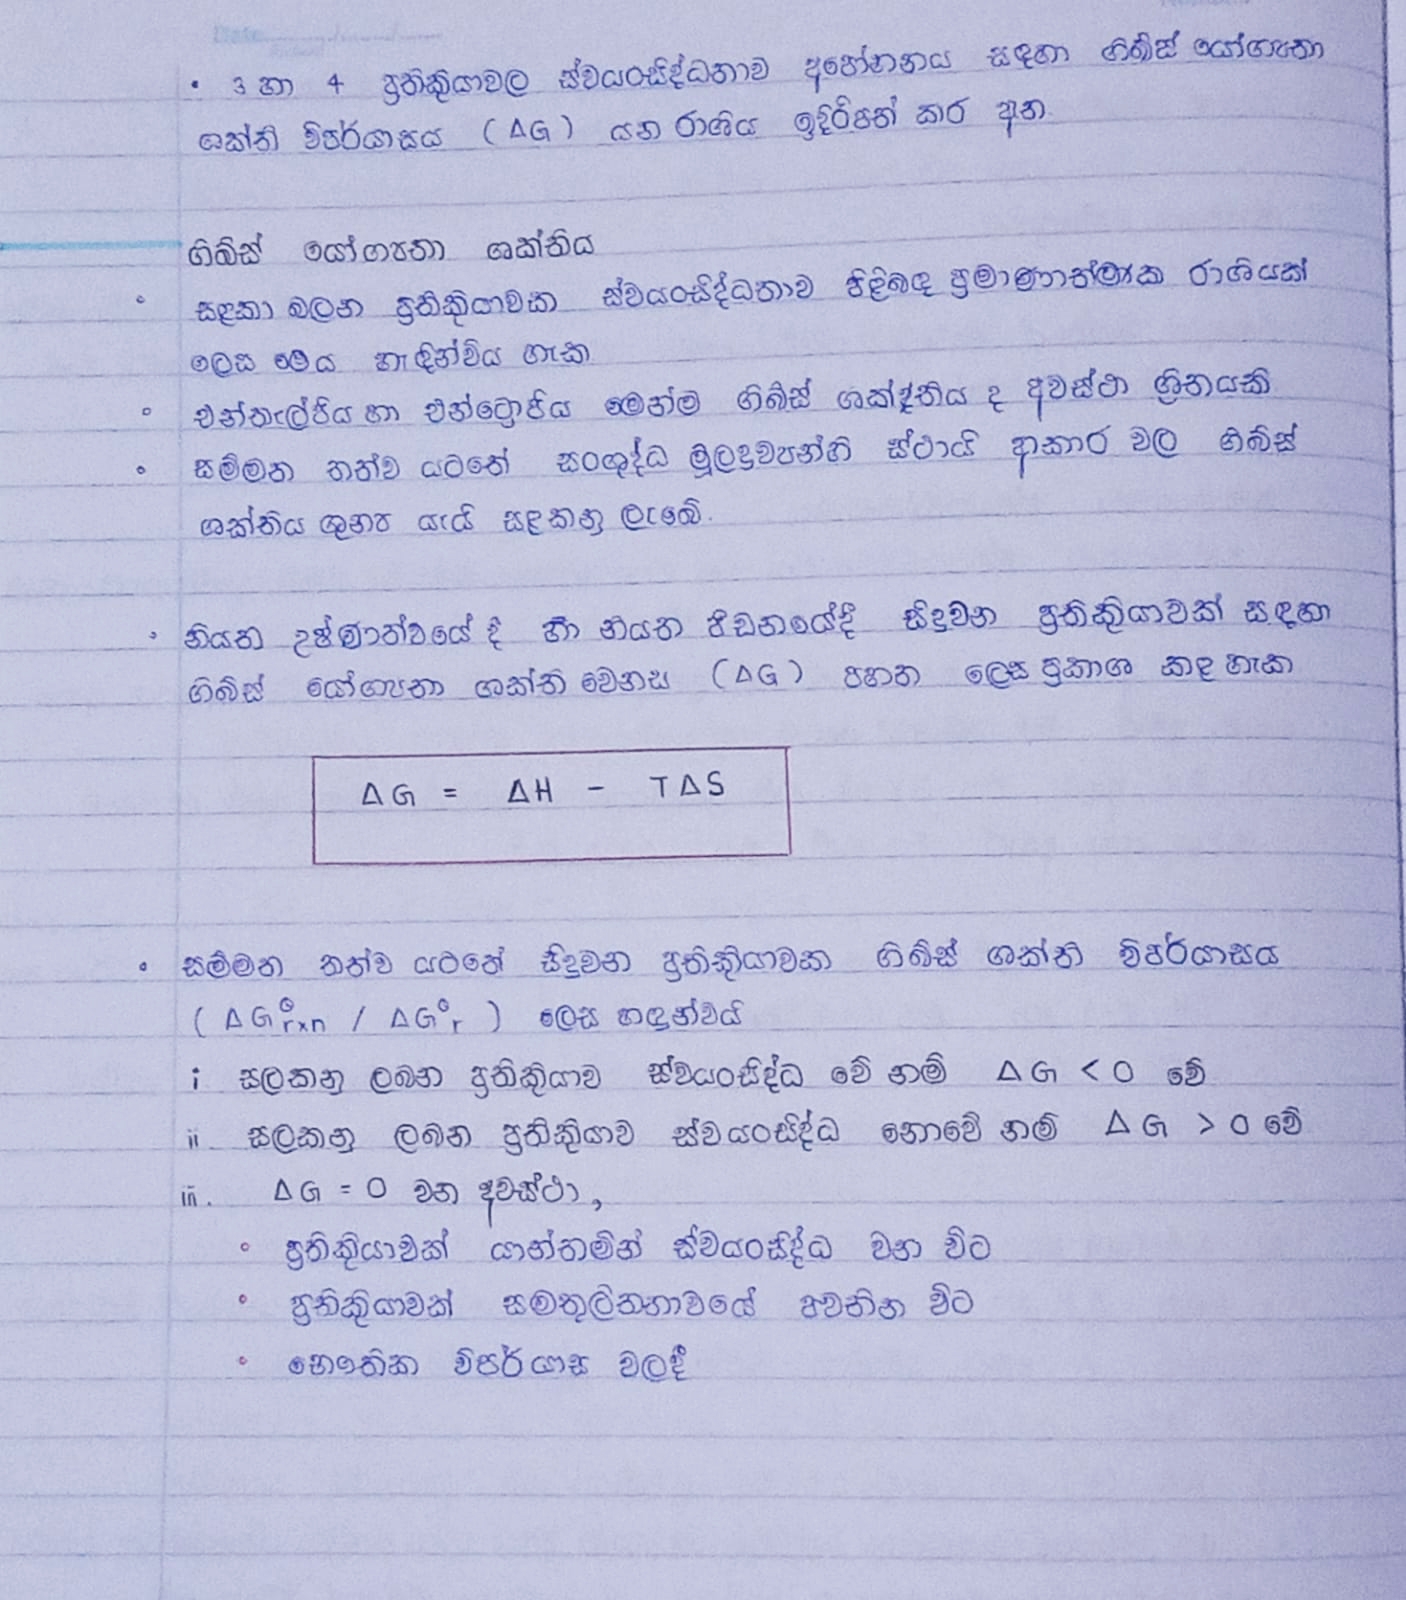 • 3 හා 4 ප්‍රතික්‍රියාවල ස්වයංසිද්ධතාව අපෝහනය සඳහා ගිබ්ස් යෝග්‍යතා
ශක්ති විපර්යාසය (ΔG) යන රාශිය ඉදිරිපත් කර අත
ගිබ්ස් යෝග්‍යතා ශක්තිය
• සළකා බලන ප්‍රතික්‍රියාවක ස්වයංසිද්ධතාව පිළිබඳ ප්‍රමාණාත්මක රාශියක්
ලෙස මෙය හැඳින්විය හැක
• එන්තැල්පිය හා එන්ට්‍රොපිය මෙන්ම ගිබ්ස් ශක්තිය ද අවස්ථා ශ්‍රිතයකි
• සම්මත තත්ව යටතේ සංශුද්ධ මූලද්‍රව්‍යන්හි ස්ථායි ආකාර වල ගිබ්ස්
ශක්තිය ශුන්‍ය යැයි සළකනු ලැබේ.
• නියත උෂ්ණත්වයේ දී හා නියත පීඩනයේදී සිදුවන ප්‍රතික්‍රියාවක් සඳහා
ගිබ්ස් යෝග්‍යතා ශක්ති වෙනස (ΔG) පහත ලෙස ප්‍රකාශ කළ හැක
ΔG = ΔH - TΔS
• සම්මත තත්ව යටතේ සිදුවන ප්‍රතික්‍රියාවක ගිබ්ස් ශක්ති විපර්යාසය
(ΔG°rxn / ΔG°r) ලෙස හඳුන්වයි
i සලකනු ලබන ප්‍රතික්‍රියාව ස්වයංසිද්ධ වේ නම් ΔG < 0 වේ
ii. සලකනු ලබන ප්‍රතික්‍රියාව ස්වයංසිද්ධ නොවේ නම් ΔG > 0 වේ
iii. ΔG = 0 වන අවස්ථා,
• ප්‍රතික්‍රියාවක් යාන්තමින් ස්වයංසිද්ධ වන විට
• ප්‍රතික්‍රියාවක් සමතුලිතතාවයේ පවතින විට
• භෞතික විපර්යාස වලදී